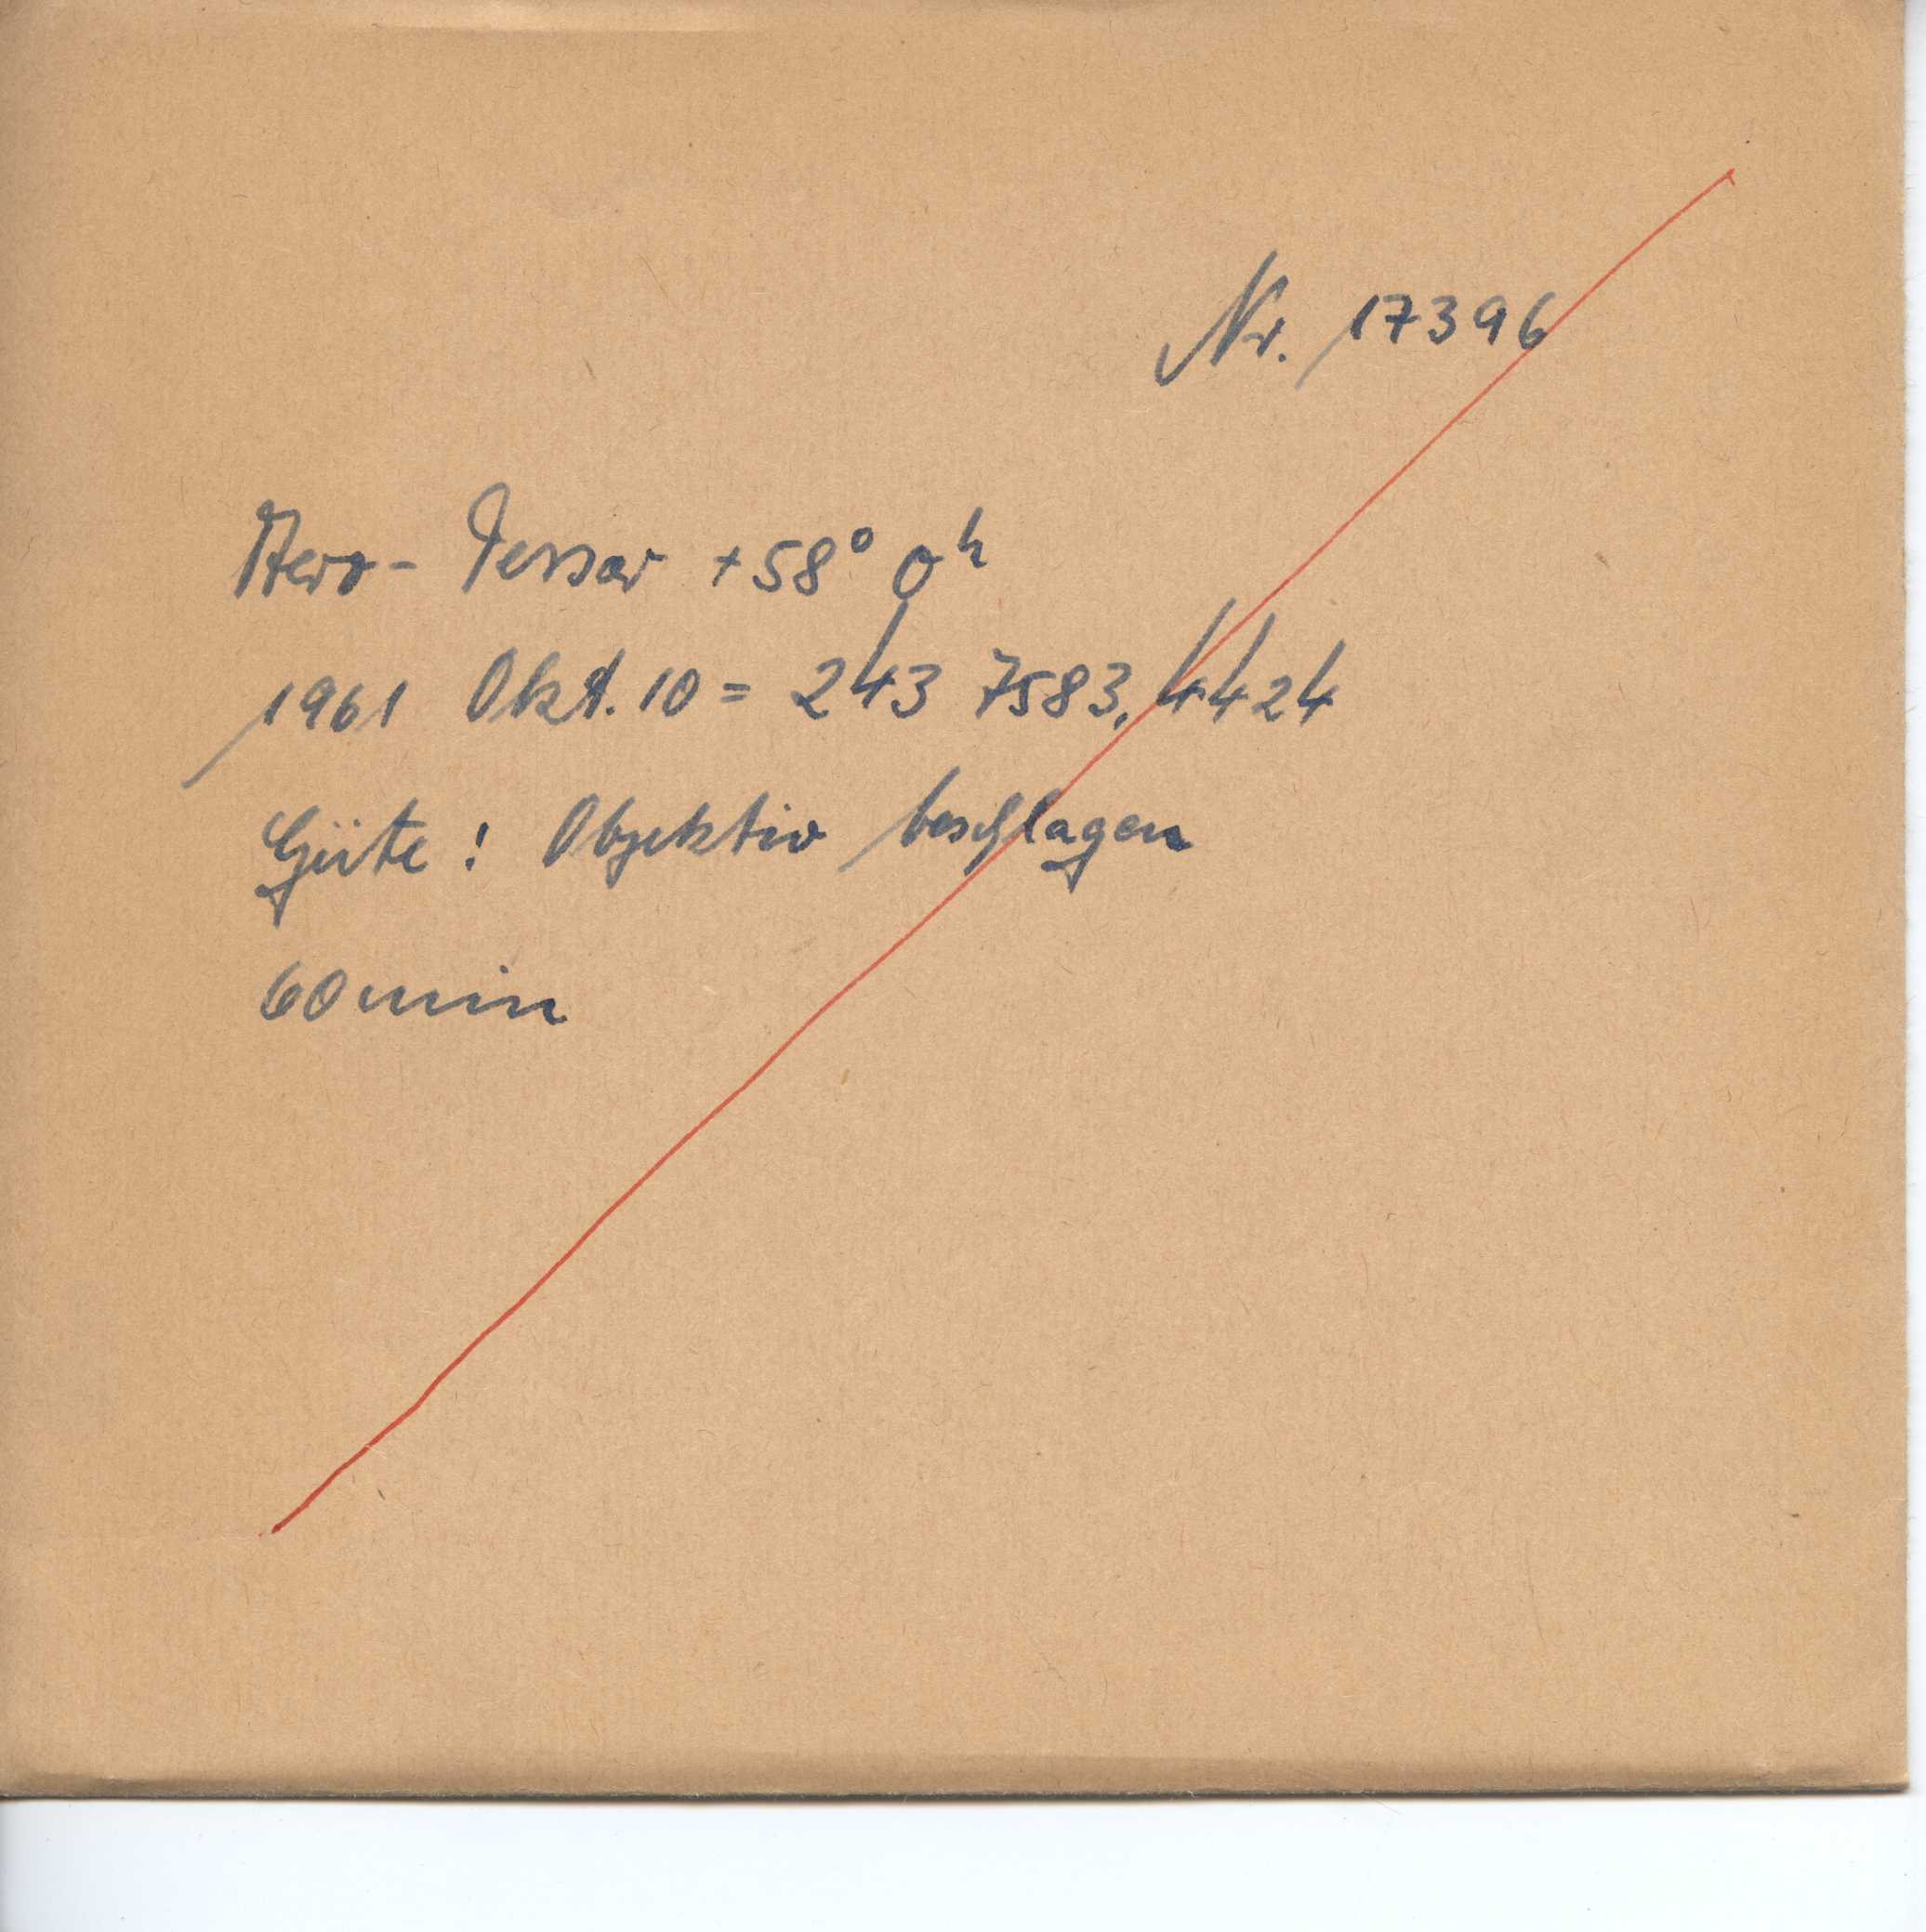 Nr. 17396
Aero-Tessar +58° 0ʰ
1961 Okt. 10 = 243 7583,4424
Güte: Objektiv beschlagen
60 min